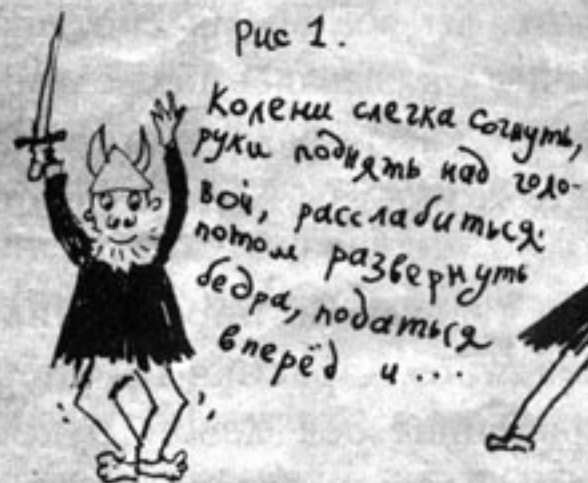 Рис 1.
Колени слегка согнуть,
руки поднять над голо-
вой, расслабиться.
потом развернуть
бедра, податься
вперёд и ...